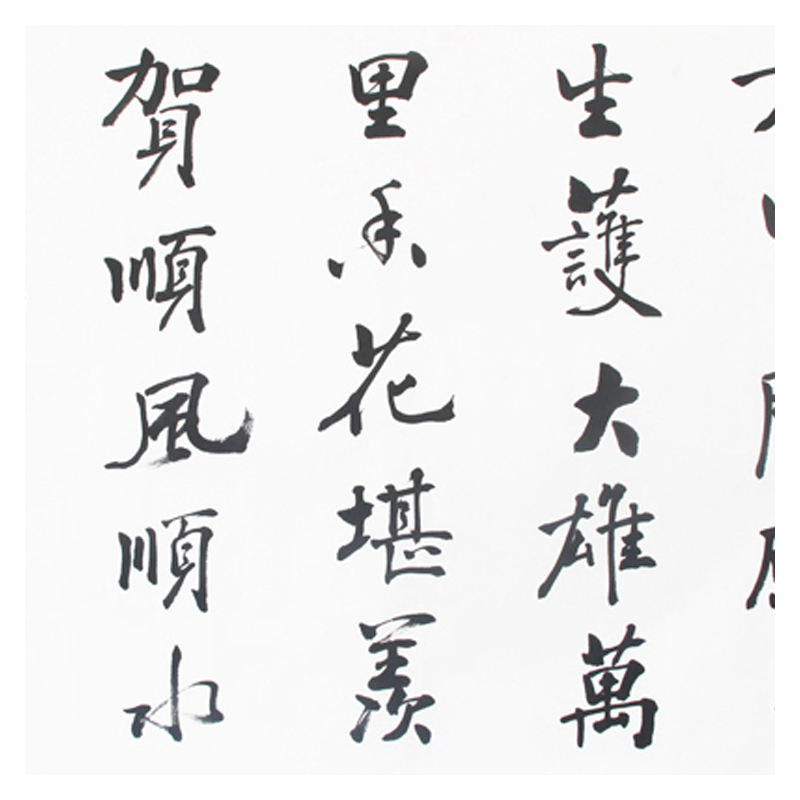 生護大雄萬
里花堪羨
賀順風順水